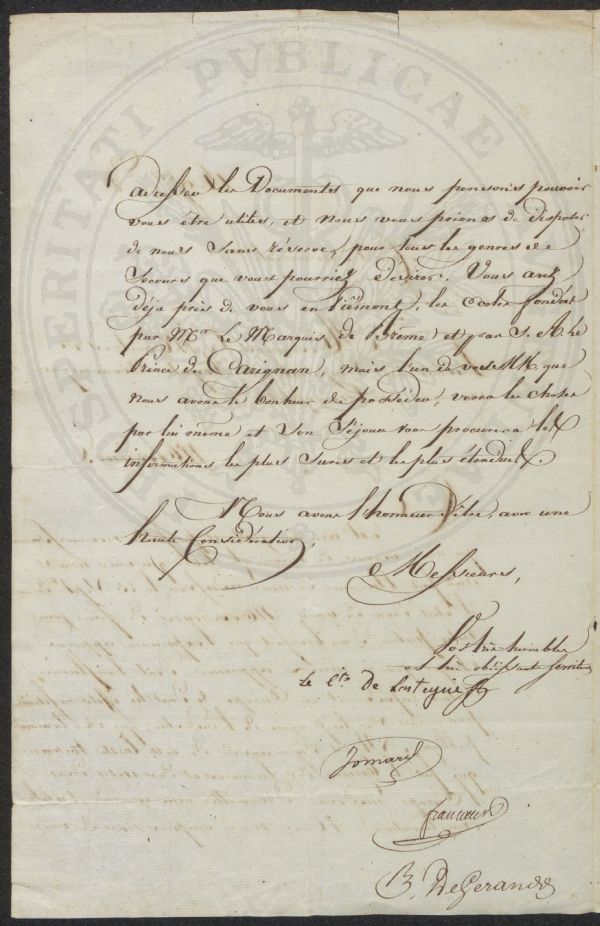 PROSPERITATI PUBLICAE
adresser les Documents que nous penserions pouvoir
vous être utiles, et nous vous prions de disposer
de nous sans réserve, pour tous les genres de
Secours que vous pourriez désirer. Vous avez
déja près de vous en Piémont, les Ecoles fondées
par Mr Le Marquis de Brême et par S. A. Le
Prince de Carignan, mais l'un de vos MM que
nous avons le bonheur de posséder, verra les choses
par lui même et son Séjour vous procurera les
informations les plus sures et les plus étendues.
Nous avons l'honneur d'être, avec une
haute Considération,
Messieurs,
Vos très humbles
et très obéissants Serviteurs
Le Cte De Lasteyrie
Jomard
francoeur
B. DeGerando